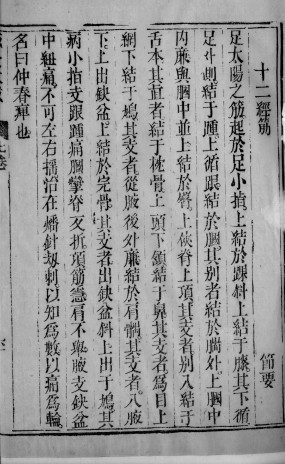 十二經筋
節要
足太陽之筋起於足小指上結於踝斜上結于膝其下循
足外側結于踵上循跟結於膕其別者結於腨外上膕中
内廉與膕中並上結於臀上俠脊上項其支者別入結于
舌本其直者結于枕骨上頭下顏結于鼻其支者爲目上
網下結于鳩其支者從腋後外廉結於肩髃其支者入腋
下上出缺盆上結於完骨其支者出缺盆斜上出于鳩其
病小指支跟踵痛膕攣脊反折項筋急肩不舉腋支缺盆
中紐痛不可左右搖治在燔針刼刺以知爲數以痛爲輸
名曰仲春痺也